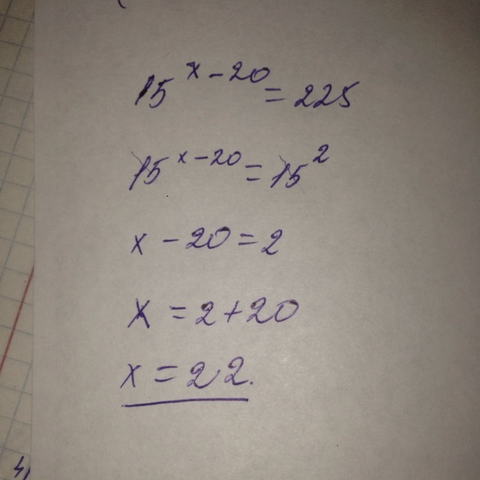 15^{x-20} = 225
15^{x-20} = 15^2
x - 20 = 2
x = 2 + 20
x = 22.
4)